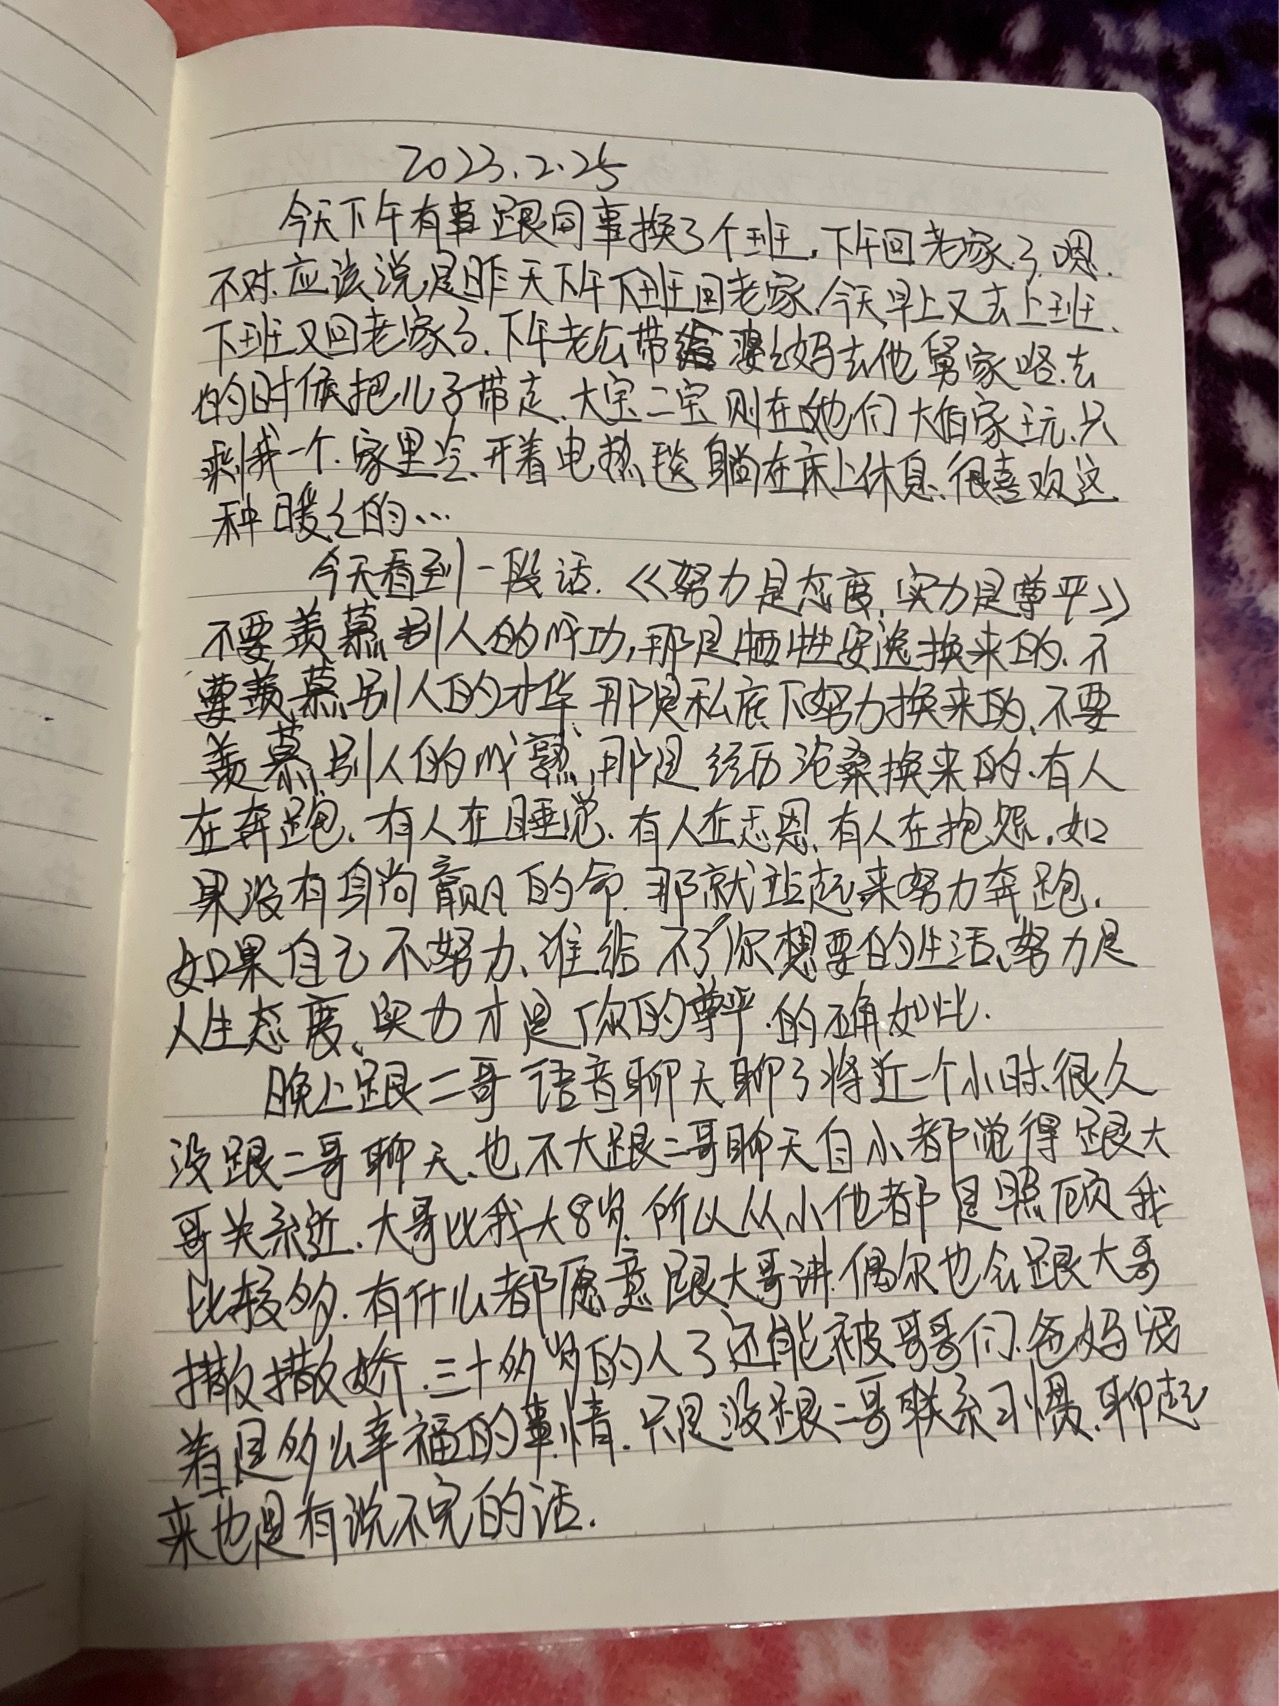 2023.2.25
今天下午有事跟同事换了个班,下午回老家了,嗯.
不对.应该说是昨天下午下班回老家,今天早上又去上班、
下班又回老家了.下午老公带婆婆妈去他舅家咯.去
的时候把儿子带走.大宝二宝则在她们大伯家玩.只
剩我一个.家里冷.开着电热毯躺在床上休息.很喜欢这
种暖暖的…
今天看到一段话.《努力是态度,实力是尊严》
不要羡慕别人的成功,那是牺牲安逸换来的.不
要羡慕别人的才华.那是私底下努力换来的.不要
羡慕别人的成熟,那是经历沧桑换来的.有人
在奔跑.有人在睡觉.有人在感恩.有人在抱怨.如
果没有自尚赢的命.那就站起来努力奔跑.
如果自己不努力、谁给不了你想要的生活、努力是
人生态度、实力才是你的尊严.的确如此.
晚上跟二哥语音聊天聊了将近一个小时.很久
没跟二哥聊天.也不大跟二哥聊天自小都觉得跟大
哥关系近.大哥比我大8岁.所以从小他都是照顾我
比较多.有什么都愿意跟大哥讲.偶尔也会跟大哥
撒撒娇.三十多岁的人了还能被哥哥们.爸妈宠
着是多么幸福的事情.只是没跟二哥联系习惯.聊起
来也是有说不完的话.